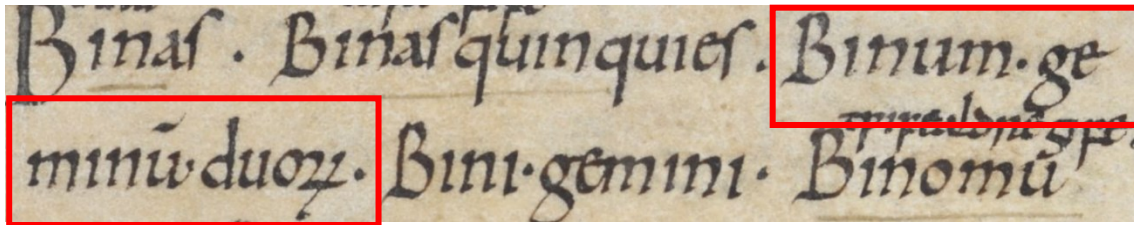 Binas · Binas quinquies . Binum · ge
minū · duoꝝ · Bini · gemini · Binomū